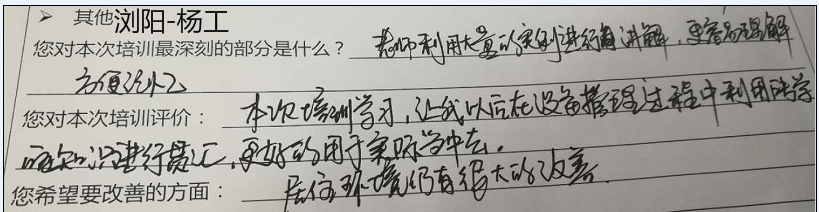 ➢ 其他浏阳-杨工
您对本次培训最深刻的部分是什么？ 老师利用大量的案例进行讲解，更容易理解
方便记忆
您对本次培训评价： 本次培训学习，让我以后在设备管理过程中利用所学
知识进行贯汇，更好的用于实际当中去。
您希望要改善的方面： 居住环境仍有很大的改善